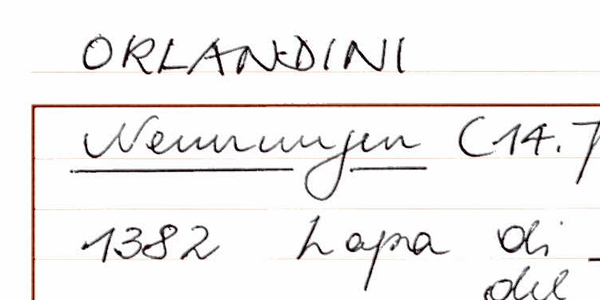 ORLANDINI
Nennungen (14.
1382 Lapa di
del